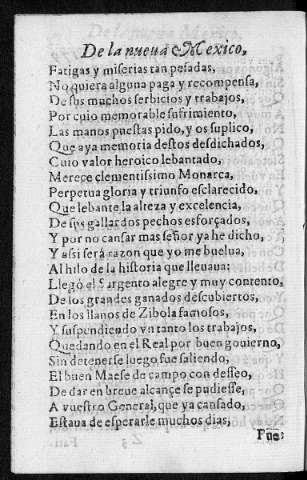 De la nueua Mexico,
Fatigas y miserias tan pesadas,
No quiera alguna paga y recompensa,
De sus muchos serbicios y trabajos,
Por cuio memorable sufrimiento,
Las manos puestas pido, y os suplico,
Que aya memoria destos desdichados,
Cuio valor heroico lebantado,
Mereçe clementissimo Monarca,
Perpetua gloria y triunfo esclarecido,
Que lebante la alteza y excelencia,
De sus gallardos pechos esforçados,
Y por no cansar mas señor ya he dicho,
Y assi será razon que yo me buelua,
Al hilo de la historia que lleuaua:
Llegò el Sargento alegre y muy contento,
De los grandes ganados descubiertos,
En los llanos de Zibola famosos,
Y suspendiendo vn tanto los trabajos,
Quedando en el Real por buen gouierno,
Sin detenerse luego fue saliendo,
El buen Maese de campo con desseo,
De dar en breue alcançe se pudiesse,
A vuestro General, que ya cansado,
Estaua de esperarle muchos dias,
Pue: